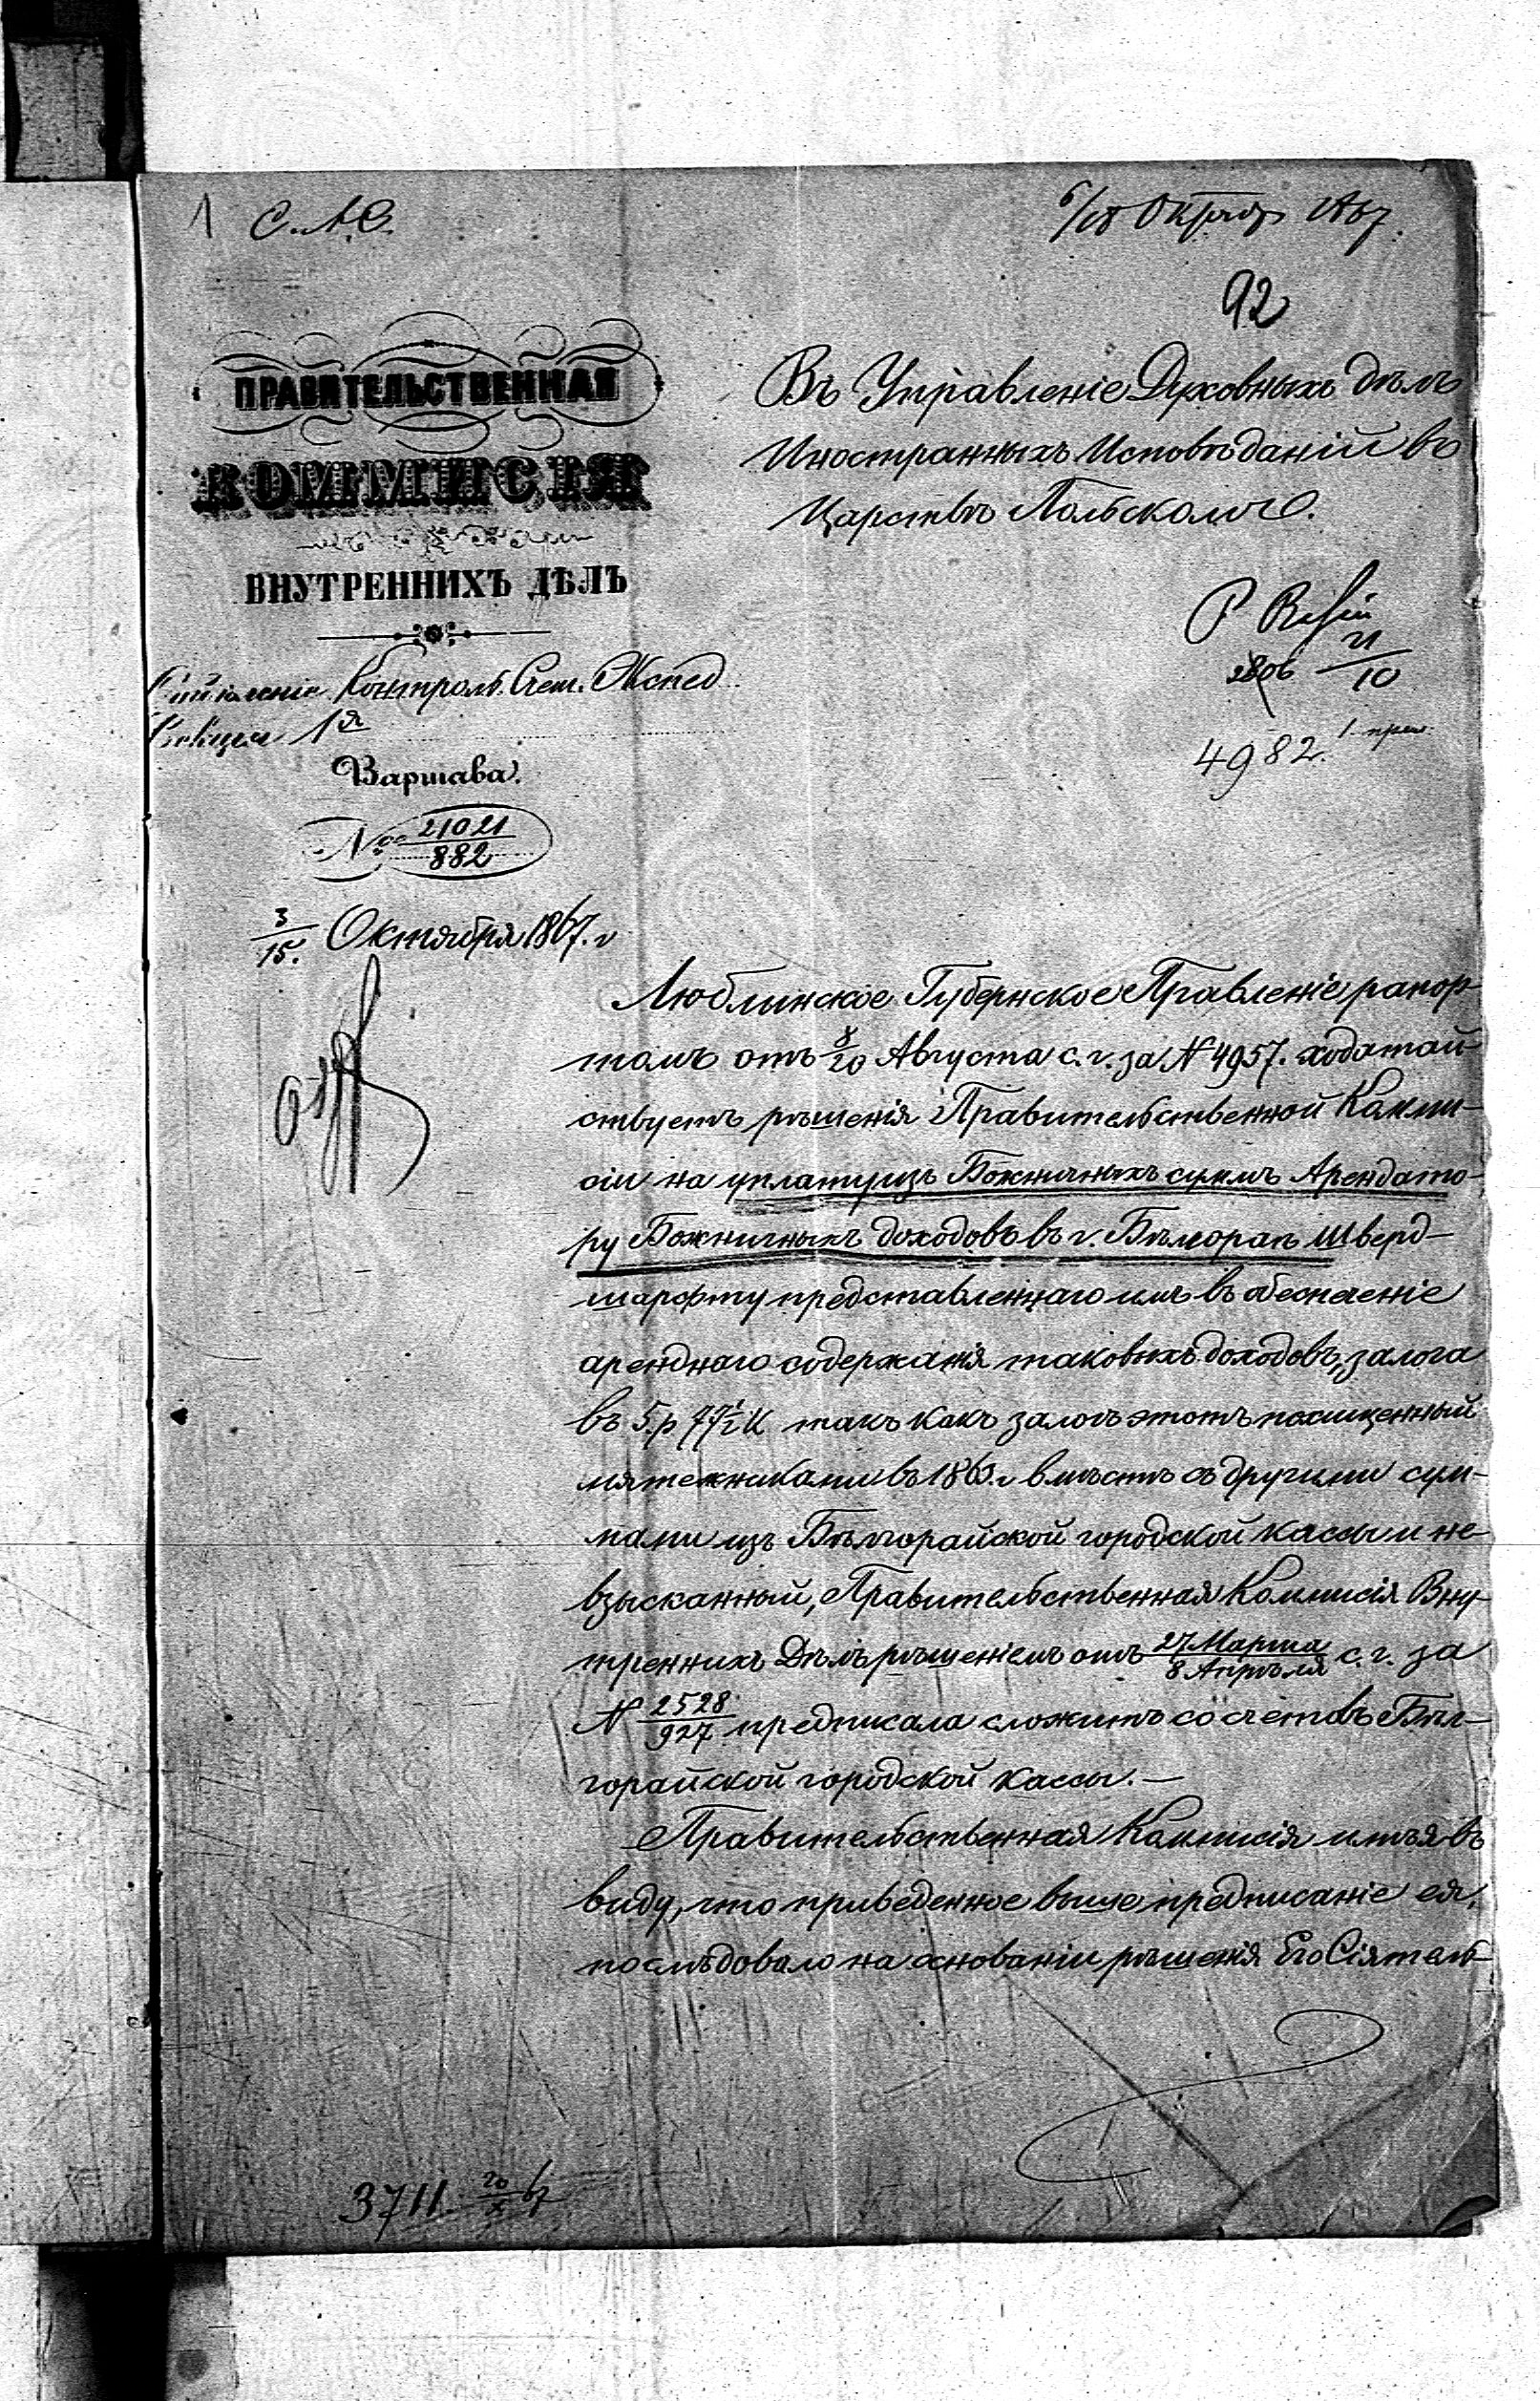 1
6/18 Октября 1867.
92
ПРАВИТЕЛЬСТВЕННАЯ
КОММИСІЯ
ВНУТРЕННИХЪ ДѢЛЪ
Контрол. Счет. Экспед.
Секція 1я
Варшава.
№ 21021/882
3/15. Октября 1867. г
Въ Управленіе Духовныхъ дѣлъ
Иностранныхъ Исповѣданій въ
Царствѣ Польскомъ.
21/10
2806
4982.
Люблинское Губернское Правленіе рапор-
томъ отъ 8/20 Августа с. г. за N 4957. ходатай-
ствуетъ рѣшенія Правительственной Комми-
сіи на уплату изъ Божничныхъ суммъ Арендато-
ру Божничныхъ доходовъ въ г. Бѣлгораѣ Шверд-
шарфту представленнаго имъ въ обезпеченіе
арендного содержанія таковыхъ доходовъ, залога
въ 5. р 77½ К такъ какъ залогъ этотъ похищенный
мятежниками въ 1863. г вмѣстѣ съ другими сум-
мами изъ Бѣлгорайской городской кассы и не
взысканный, Правительственная Коммисія Вну-
треннихъ Дѣлъ рѣшеніемъ отъ 27 Марта/8 Апрѣля с. г. за
N 2528/927 предписала сложить со счетовъ Бѣл-
горайской городской кассы. —
Правительственная Коммисія имѣя въ
виду, что приведенное выше предписаніе ея,
послѣдовало на основаніи рѣшенія Его Сіятель-
3711 20/X 67